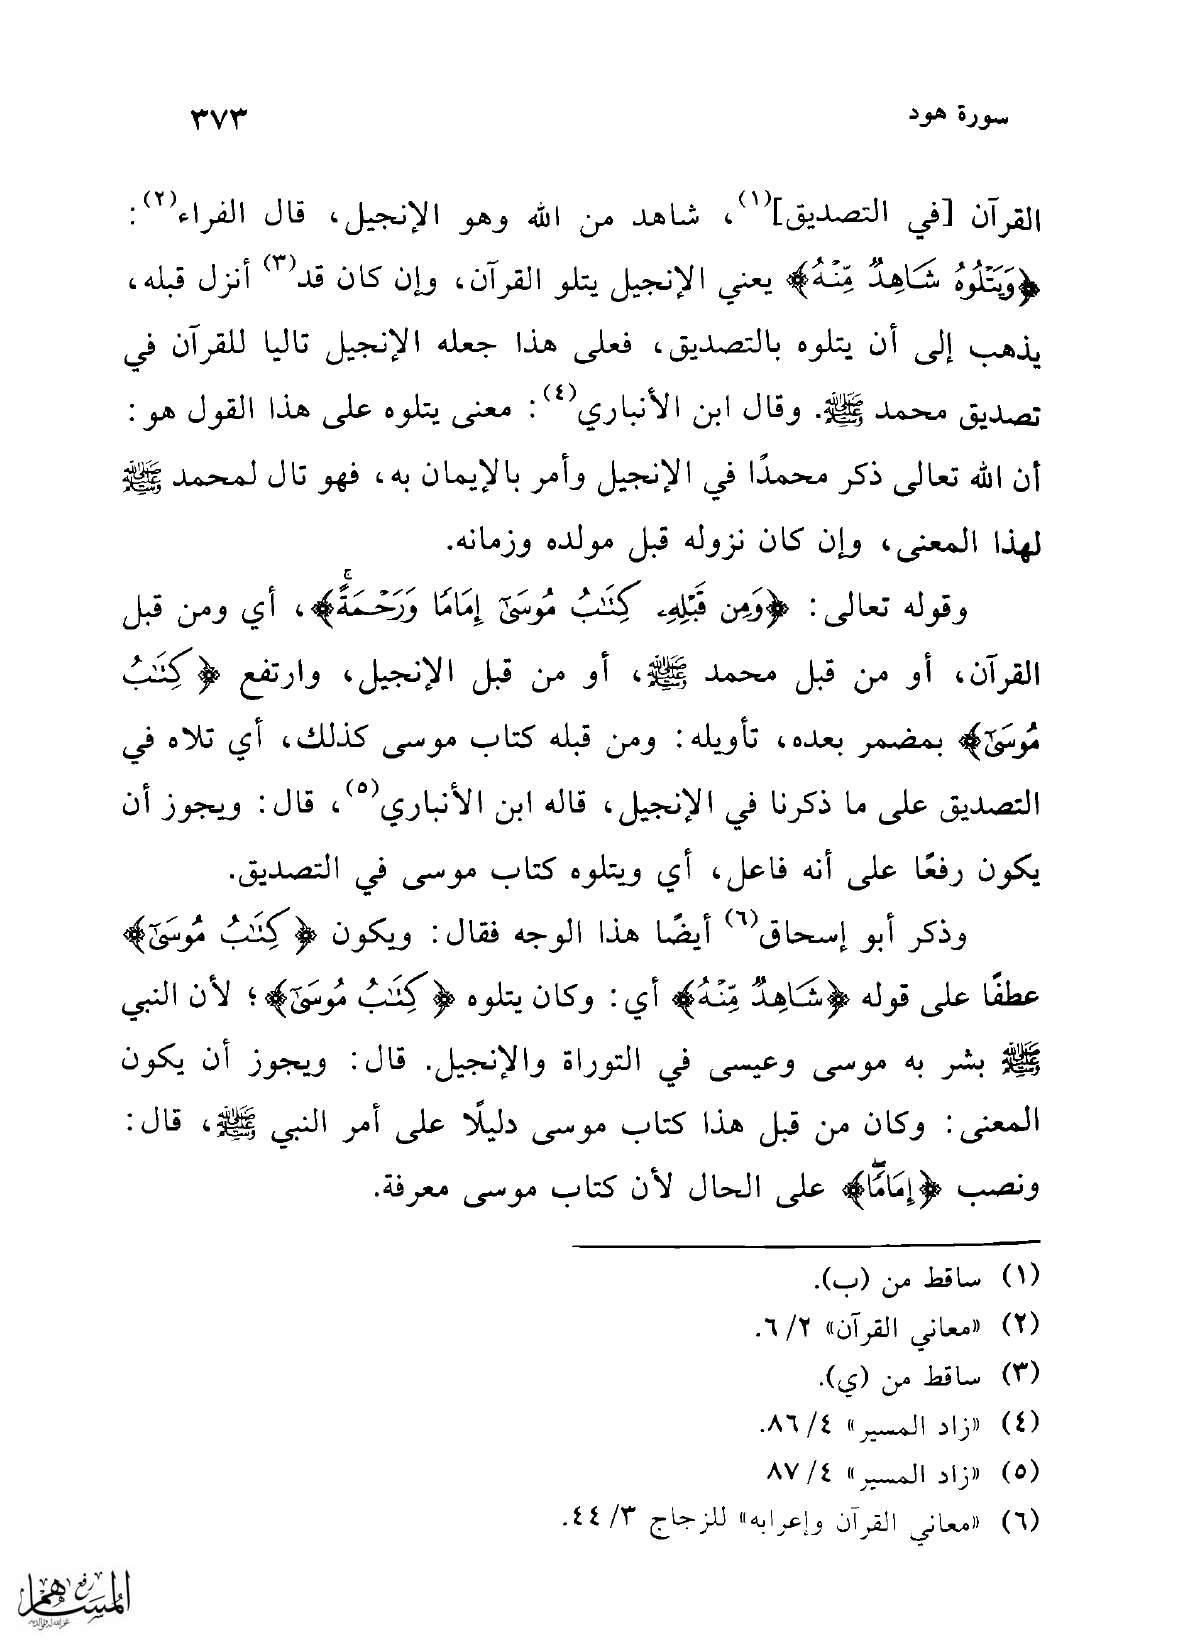 سورة هود
٣٧٣
القرآن [في التصديق](١)، شاهد من الله وهو الإنجيل، قال الفراء(٢):
﴿وَيَتْلُوهُ شَاهِدٌ مِّنْهُ﴾ يعني الإنجيل يتلو القرآن، وإن كان قد(٣) أنزل قبله،
يذهب إلى أن يتلوه بالتصديق، فعلى هذا جعله الإنجيل تاليا للقرآن في
تصديق محمد ﷺ. وقال ابن الأنباري(٤): معنى يتلوه على هذا القول هو:
أن الله تعالى ذكر محمدًا في الإنجيل وأمر بالإيمان به، فهو تال لمحمد ﷺ
لهذا المعنى، وإن كان نزوله قبل مولده وزمانه.
وقوله تعالى: ﴿وَمِن قَبْلِهِۦ كِتَٰبُ مُوسَىٰٓ إِمَامًا وَرَحْمَةًۚ﴾، أي ومن قبل
القرآن، أو من قبل محمد ﷺ، أو من قبل الإنجيل، وارتفع ﴿كِتَٰبُ
مُوسَىٰٓ﴾ بمضمر بعده، تأويله: ومن قبله كتاب موسى كذلك، أي تلاه في
التصديق على ما ذكرنا في الإنجيل، قاله ابن الأنباري(٥)، قال: ويجوز أن
يكون رفعًا على أنه فاعل، أي ويتلوه كتاب موسى في التصديق.
وذكر أبو إسحاق(٦) أيضًا هذا الوجه فقال: ويكون ﴿كِتَٰبُ مُوسَىٰٓ﴾
عطفًا على قوله ﴿شَاهِدٌ مِّنْهُ﴾ أي: وكان يتلوه ﴿كِتَٰبُ مُوسَىٰٓ﴾؛ لأن النبي
ﷺ بشر به موسى وعيسى في التوراة والإنجيل. قال: ويجوز أن يكون
المعنى: وكان من قبل هذا كتاب موسى دليلًا على أمر النبي ﷺ، قال:
ونصب ﴿إِمَامًاۖ﴾ على الحال لأن كتاب موسى معرفة.
(١) ساقط من (ب).
(٢) «معاني القرآن» ٢/ ٦.
(٣) ساقط من (ي).
(٤) «زاد المسير» ٤/ ٨٦.
(٥) «زاد المسير» ٤/ ٨٧
(٦) «معاني القرآن وإعرابه» للزجاج ٣/ ٤٤.